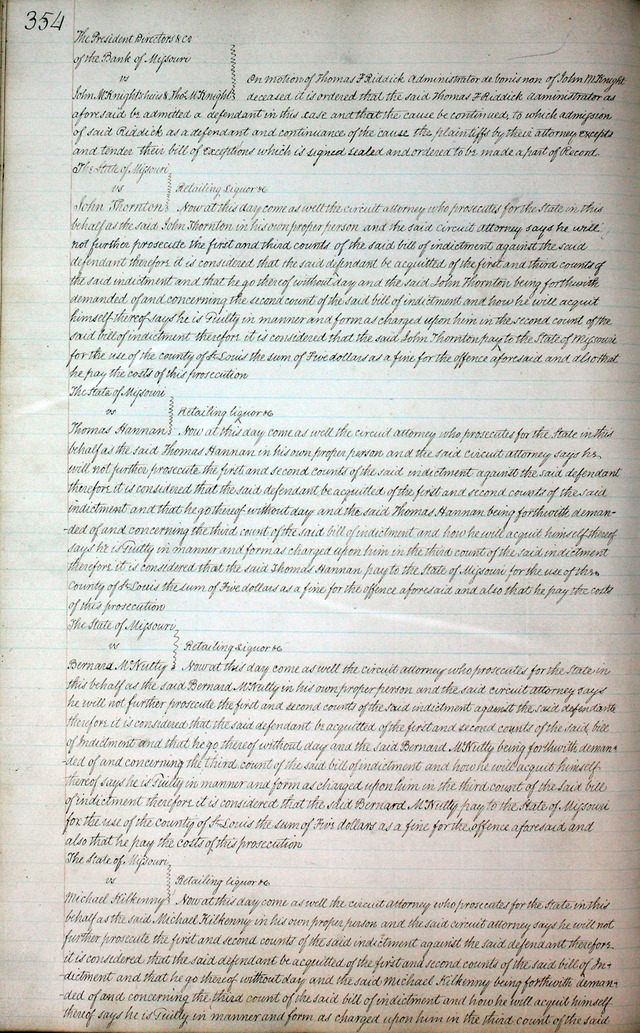 354
The President Directors & Co
of the Bank of Missouri
vs
On motion of Thomas F Riddick Administrator de bonis non of John McKnight
John McKnights heirs & Thos McKnight
deceased it is ordered that the said Thomas F Riddick administrator as
aforesaid be admitted a defendant in this case and that the cause be continued, to which admission
of said Riddick as a defendant and continuance of the cause the plaintiffs by their attorney excepts
and tender their bill of exceptions which is signed sealed and ordered to be made a part of Record
The State of Missouri
vs
Retailing Liquor &c
John Thornton
Now at this day come as well the circuit attorney who prosecutes for the State in this
behalf as the said John Thornton in his own proper person and the said circuit attorney says he will
not further prosecute the first and third counts of the said bill of indictment against the said
defendant therefore it is considered that the said defendant be acquitted of the first and third counts of
the said indictment and that he go thereof without day and the said John Thornton being forthwith
demanded of and concerning the second count of the said bill of indictment and how he will acquit
himself thereof says he is Guilty in manner and form as charged upon him in the second count of the
said bill of indictment therefore it is considered that the said John Thornton pay to the State of Missouri
for the use of the county of St Louis the sum of Five dollars as a fine for the offence aforesaid and also that
he pay the costs of this prosecution
The State of Missouri
vs
Retailing liquor &c
Thomas Hannan
Now at this day come as well the circuit attorney who prosecutes for the State in this
behalf as the said Thomas Hannan in his own proper person and the said circuit attorney says he
will not further prosecute the first and second counts of the said indictment against the said defendant
therefore it is considered that the said defendant be acquitted of the first and second counts of the said
indictment and that he go thereof without day and the said Thomas Hannan being forthwith deman-
-ded of and concerning the third count of the said bill of indictment and how he will acquit himself thereof
says he is Guilty in manner and form as charged upon him in the third count of the said indictment
therefore it is considered that the said Thomas Hannan pay to the State of Missouri for the use of the
County of St Louis the sum of Five dollars as a fine for the offence aforesaid and also that he pay the costs
of this prosecution
The State of Missouri
vs
Retailing Liquor &c
Bernard McNutty
Now at this day come as well the circuit attorney who prosecutes for the State in
this behalf as the said Bernard McNutty in his own proper person and the said circuit attorney says
he will not further prosecute the first and second counts of the said indictment against the said defendants
therefore it is considered that the said defendant be acquitted of the first and second counts of the said bill
of Indictment and that he go thereof without day and the said Bernard McNutty being forthwith deman-
ded of and concerning the third count of the said bill of indictment and how he will acquit himself
thereof says he is Guilty in manner and form as charged upon him in the third count of the said bill
of indictment therefore it is considered that the said Bernard McNutty pay to the State of Missouri
for the use of the county of St Louis the sum of Five dollars as a fine for the offence aforesaid and
also that he pay the costs of this prosecution
The State of Missouri
vs
Retailing liquor &c
Michael Kilkenny
Now at this day come as well the circuit attorney who prosecutes for the State in this
behalf as the said Michael Kilkenny in his own proper person and the said circuit attorney says he will not
further prosecute the first and second counts of the said indictment against the said defendant therefore
it is considered that the said defendant be acquitted of the first and second counts of the said bill of In-
dictment and that he go thereof without day and the said Michael Kilkenny being forthwith deman-
ded of and concerning the third count of the said bill of indictment and how he will acquit himself
thereof says he is Guilty in manner and form as charged upon him in the third count of the said